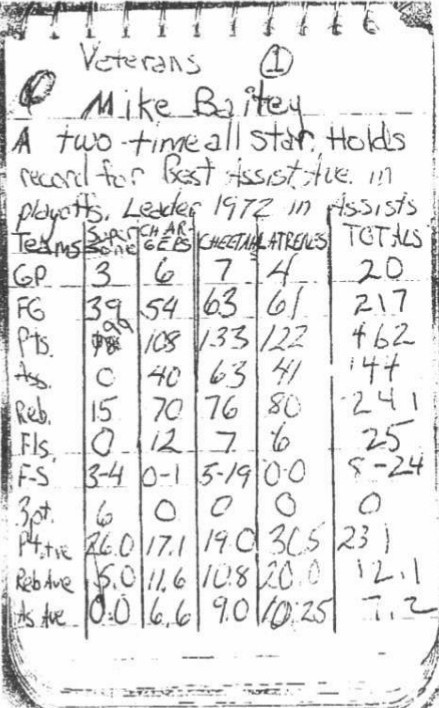 Veterans ①
Mike Bailey
A two-time all star. Holds
record for Best Assist Ave. in
playoffs. Leader 1972 in Assists
Teams CHARGERS CHEETAH LATRENES TOTALS
GP 3 6 7 4 20
FG 39 54 63 61 217
Pts. 99 108 133 122 462
Ass. 0 40 63 41 144
Reb. 15 70 76 80 241
Fls. 0 12 7 6 25
F-S 3-4 0-1 5-19 0-0 8-24
3pt. 6 0 0 0 0
Pt. Ave 26.0 17.1 19.0 30.5 23.1
Reb Ave 5.0 11.6 10.8 20.0 12.1
As Ave 0.0 6.6 9.0 10.25 7.2